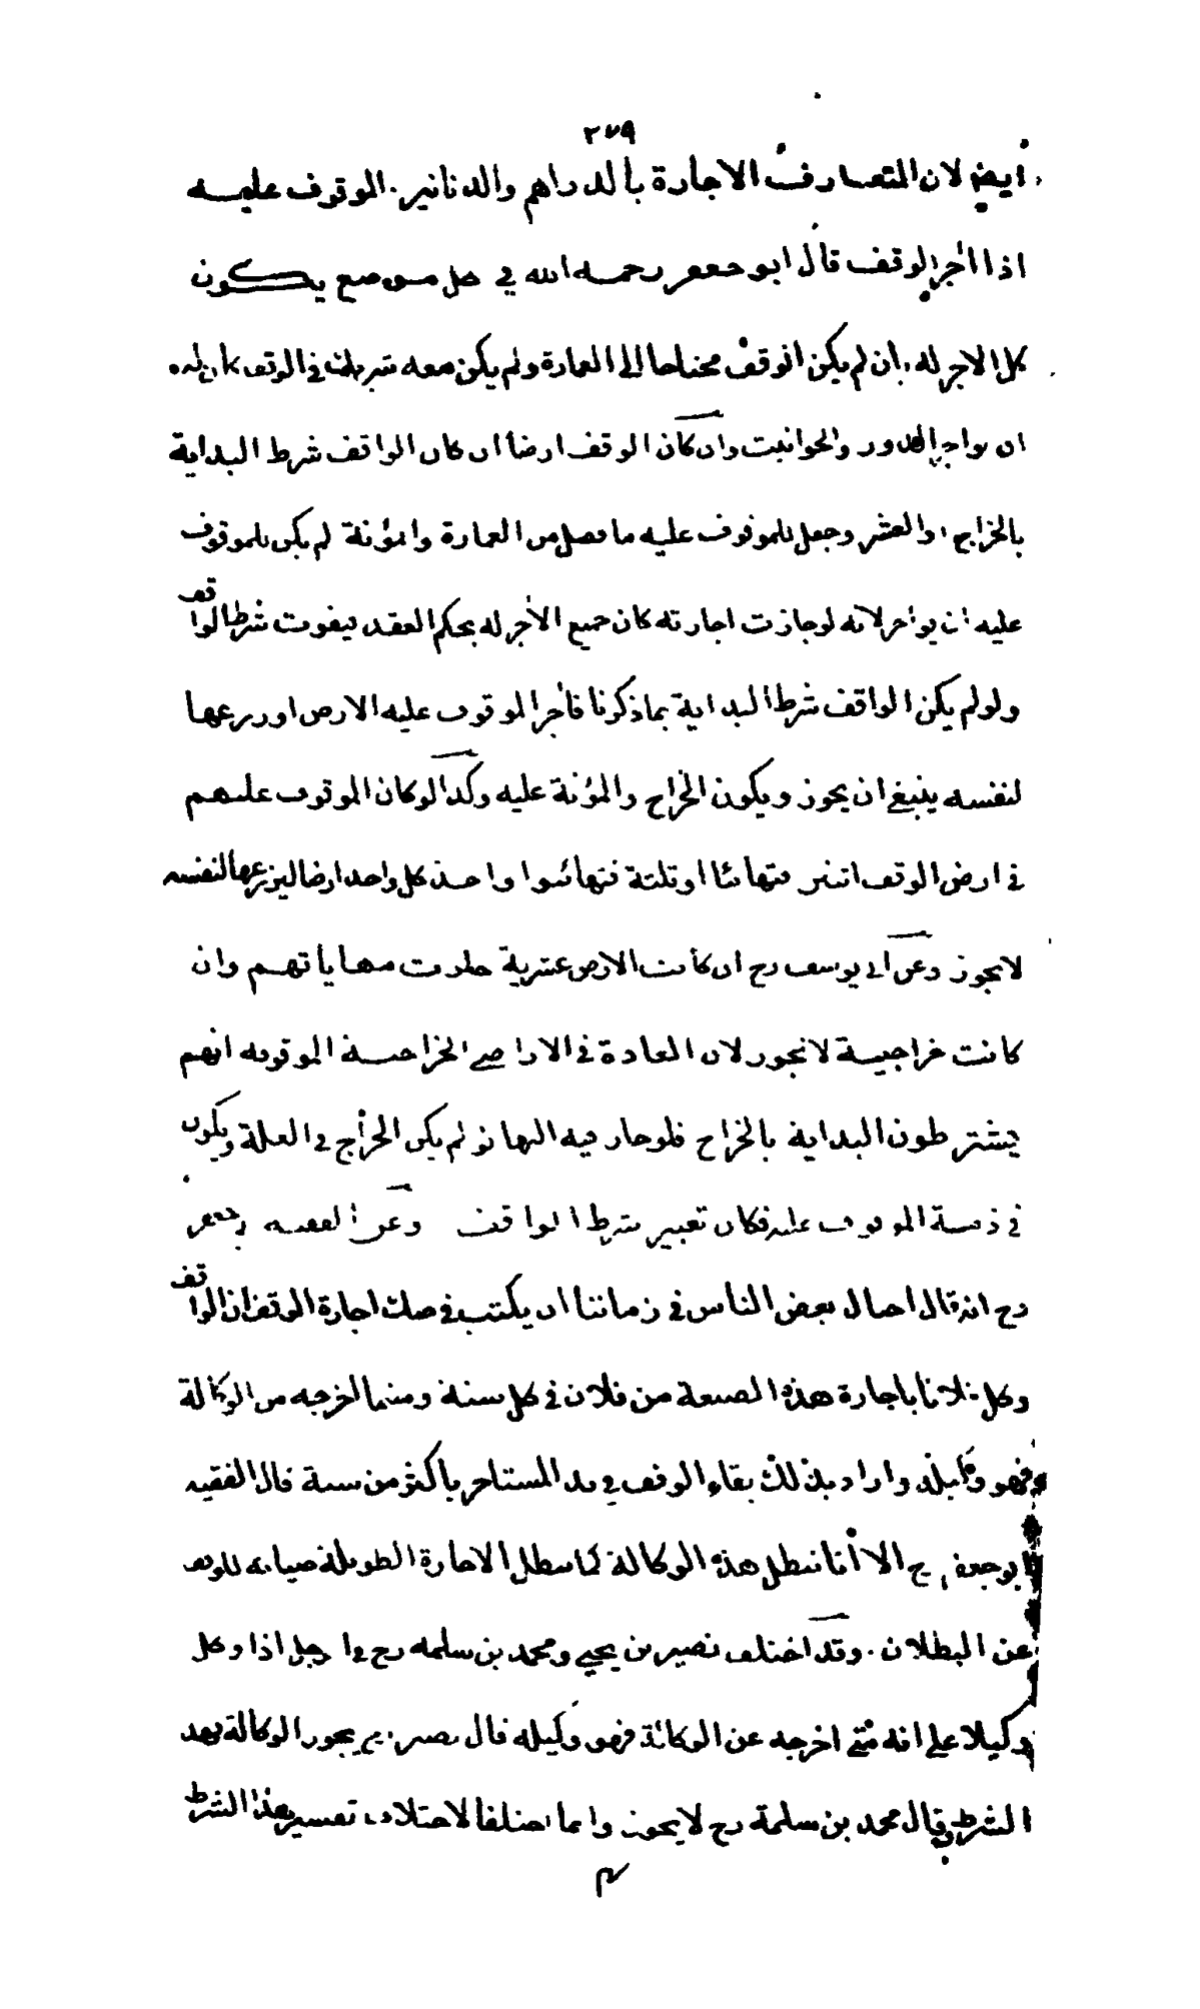 ٢٧٩
ايضا لان المتعارف الاجارة بالدراهم والدنانير. الموقوف عليه
اذا اجر الوقف قال ابو جعفر رحمه الله في كل موضع يكون
كل الاجر له بان لم يكن الوقف محتاجا الى العمارة ولم يكن معه شريك في الوقف كان له
ان يواجر الدور والحوانيت وان كان الوقف ارضا ان كان الواقف شرط البداية
بالخراج والعشر وجعل للموقوف عليه ما فضل من العمارة والمؤنة لم يكن للموقوف
عليه ان يواجر لانه لو جازت اجارته كان جميع الاجر له بحكم العقد فيفوت شرط الواقف
ولو لم يكن الواقف شرط البداية بما ذكرنا فاجر الموقوف عليه الارض او زرعها
لنفسه ينبغي ان يجوز ويكون الخراج والمؤنة عليه وكذا لو كان الموقوف عليهم
في ارض الوقف اثنين فتهائيا او ثلثة فتهائوا واخذ كل واحد ارضا ليزرعها لنفسه
لا يجوز وعن ابي يوسف رح ان كانت الارض عشرية جازت مهاياتهم وان
كانت خراجية لا تجوز لان العادة في الاراضي الخراجية الموقوفة انهم
يشترطون البداية بالخراج فلو جاز فيه التهائو لم يكن الخراج في الغلة ويكون
في ذمة الموقوف عليه فكان تغيير شرط الواقف وعن الفقيه ابي جعفر
رح انه قال احتال بعض الناس في زماننا ان يكتب في صك اجارة الوقف ان الواقف
وكل فلانا باجارة هذه الضيعة من فلان في كل سنة ومتى ما اخرجه من الوكالة
فهو وكيله واراد بذلك بقاء الوقف في يد المستاجر باكثر من سنة قال الفقيه
ابو جعفر رح الا انا نبطل هذه الوكالة كما نبطل الاجارة الطويلة صيانة للوقف
عن البطلان. وقد اختلف نصير بن يحيى ومحمد بن سلمه رح في رجل اذا وكل
وكيلا على انه متى اخرجه عن الوكالة فهو وكيله قال نصير رح يجوز الوكالة بهذا
الشرط وقال محمد بن سلمة رح لا يجوز وانما اختلفا لاختلاف تفسير هذا الشرط